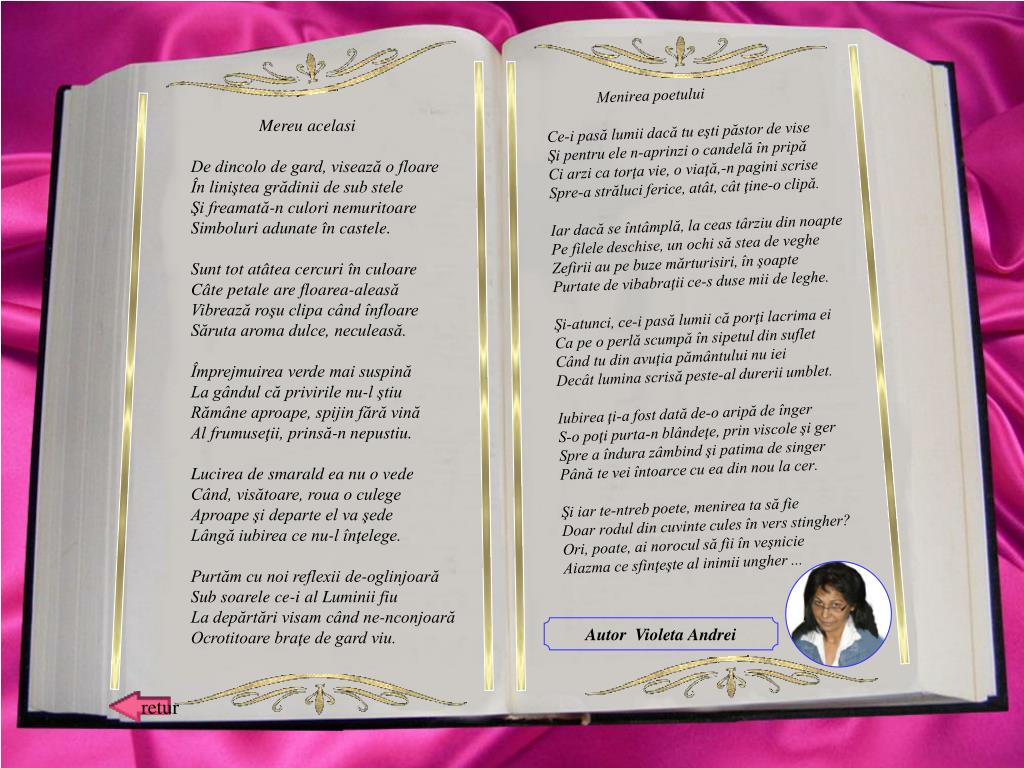 Mereu acelasi
De dincolo de gard, visează o floare
În liniştea grădinii de sub stele
Şi freamată-n culori nemuritoare
Simboluri adunate în castele.
Sunt tot atâtea cercuri în culoare
Câte petale are floarea-aleasă
Vibrează roşu clipa când înfloare
Săruta aroma dulce, neculeasă.
Împrejmuirea verde mai suspină
La gândul că privirile nu-l ştiu
Rămâne aproape, spijin fără vină
Al frumuseţii, prinsă-n nepustiu.
Lucirea de smarald ea nu o vede
Când, visătoare, roua o culege
Aproape şi departe el va şede
Lângă iubirea ce nu-l înţelege.
Purtăm cu noi reflexii de-oglinjoară
Sub soarele ce-i al Luminii fiu
La depărtări visam când ne-nconjoară
Ocrotitoare braţe de gard viu.
retur
Menirea poetului
Ce-i pasă lumii dacă tu eşti păstor de vise
Şi pentru ele n-aprinzi o candelă în pripă
Ci arzi ca torţa vie, o viaţă,-n pagini scrise
Spre-a străluci ferice, atât, cât ţine-o clipă.
Iar dacă se întâmplă, la ceas târziu din noapte
Pe filele deschise, un ochi să stea de veghe
Zefirii au pe buze mărturisiri, în şoapte
Purtate de vibabraţii ce-s duse mii de leghe.
Şi-atunci, ce-i pasă lumii că porţi lacrima ei
Ca pe o perlă scumpă în sipetul din suflet
Când tu din avuţia pământului nu iei
Decât lumina scrisă peste-al durerii umblet.
Iubirea ţi-a fost dată de-o aripă de înger
S-o poţi purta-n blândeţe, prin viscole şi ger
Spre a îndura zâmbind şi patima de singer
Până te vei întoarce cu ea din nou la cer.
Şi iar te-ntreb poete, menirea ta să fie
Doar rodul din cuvinte cules în vers stingher?
Ori, poate, ai norocul să fii în veşnicie
Aiazma ce sfinţeşte al inimii ungher ...
Autor Violeta Andrei